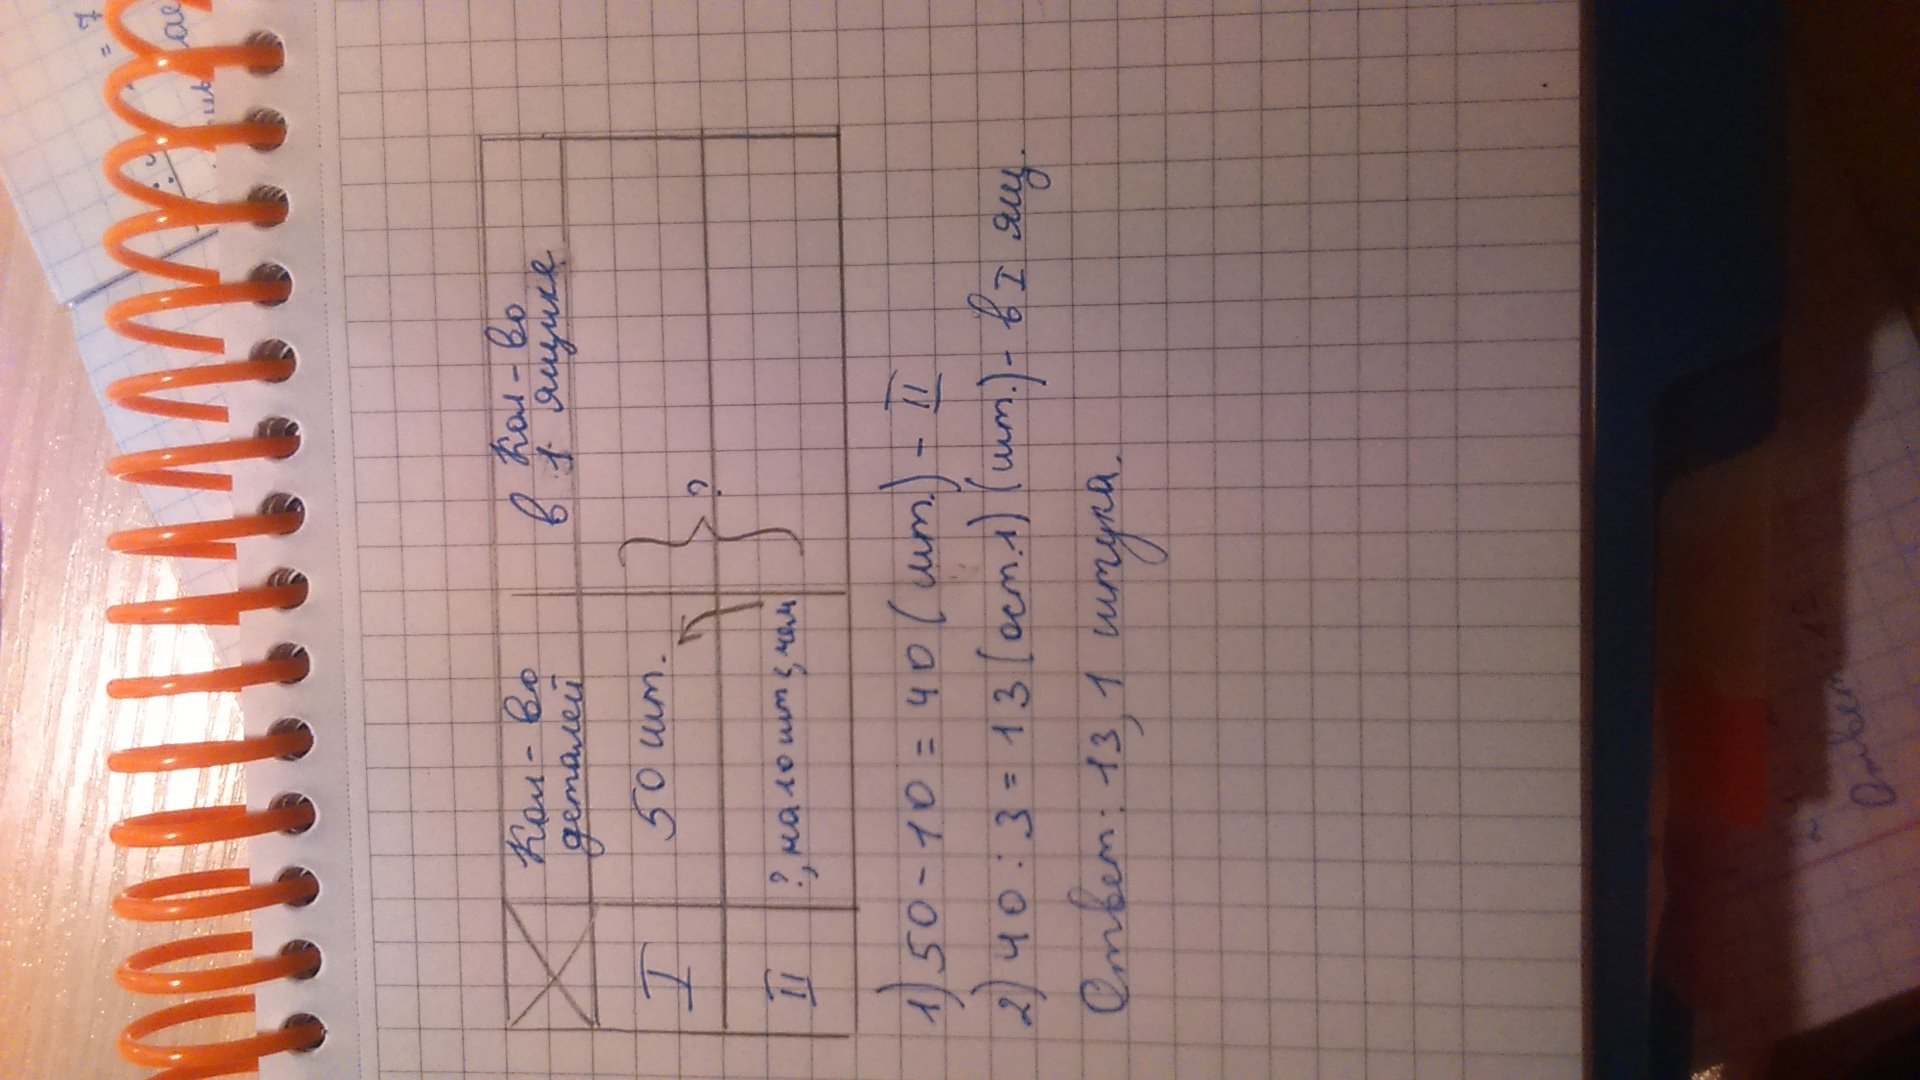 Кол-во деталей
Кол-во
в 1 ящике
I
50 шт.
?
II
?, на 10 шт <, чем
1) 50 - 10 = 40 (шт.) - II
2) 40 : 3 = 13 (ост. 1) (шт.) - в I ящ.
Ответ: 13, 1 штука.
= 7
Ответ